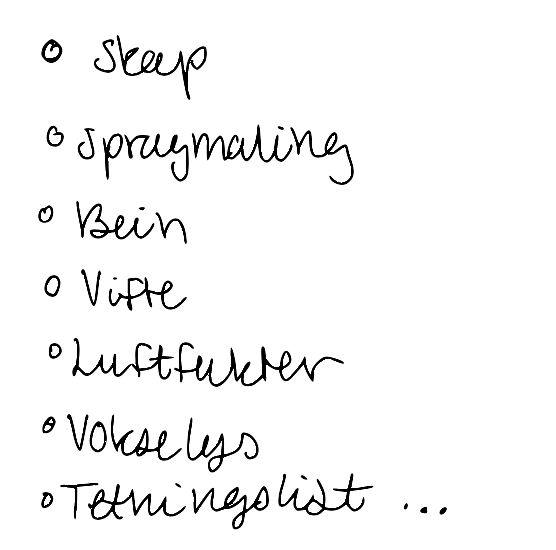 ◦ Skap
◦ Spraymaling
◦ Bein
◦ Vifte
◦ Luftfukter
◦ Vokselys
◦ Tetningslist ...